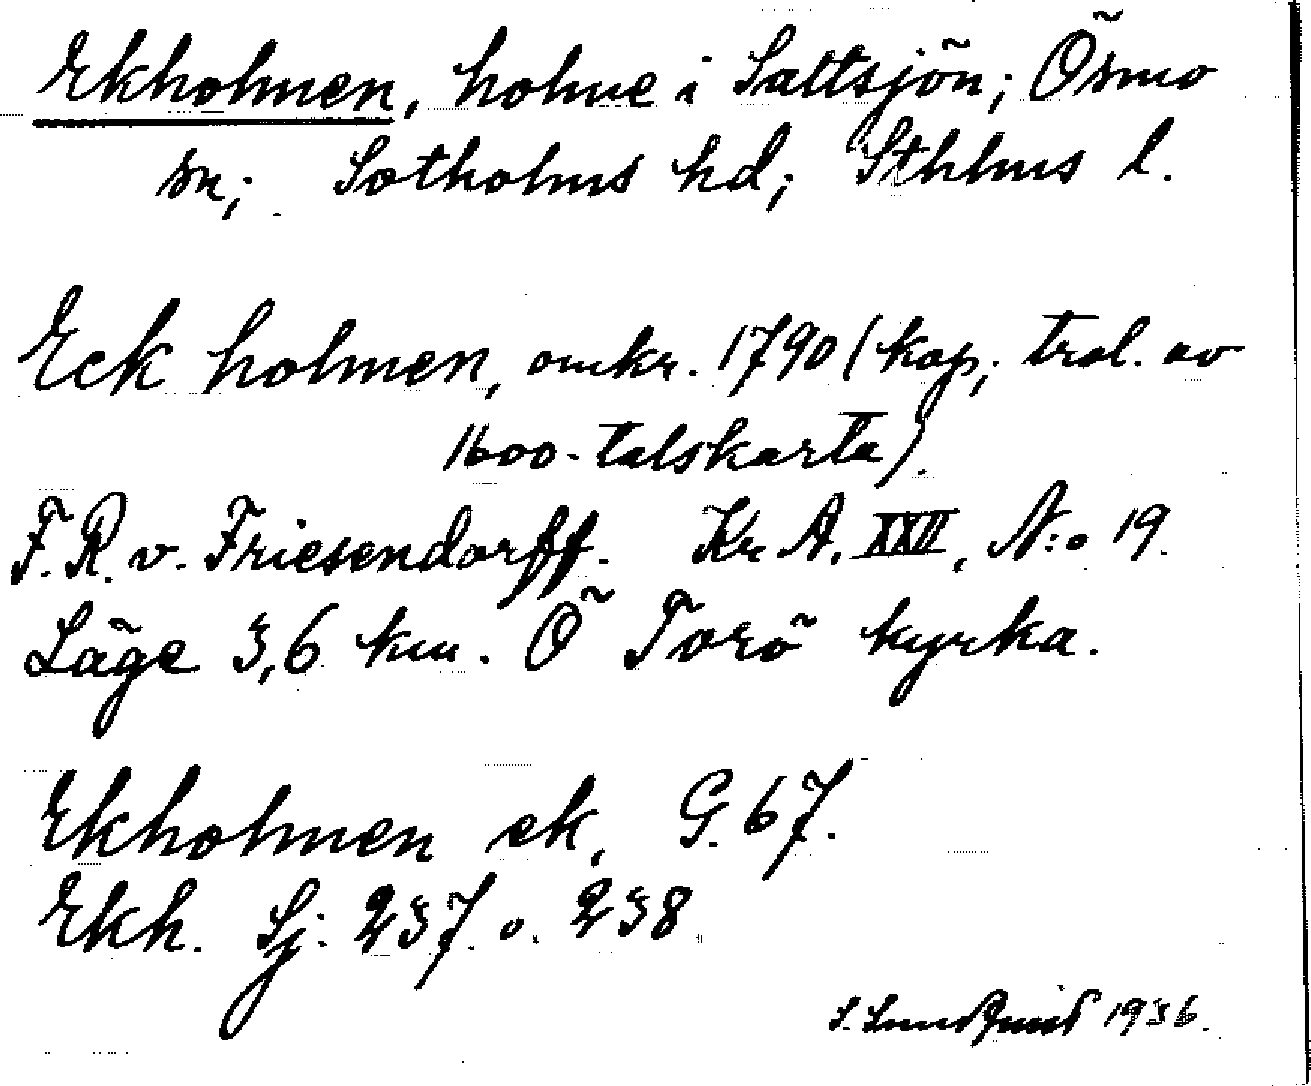 Ekholmen, holme i Saltsjön; Ösmo
sn; Sotholms hd; Sthlms l.
Eck holmen, omkr. 1790 (kop; trol. av
1600-talskarta).
F. R. v. Friesendorff. Kr A. XXII, N:o 19.
Läge 3,6 km. Ö Torö kyrka.
Ekholmen ek, G. 67.
Ekh. Sj. 237. o. 238
S. Lundquist 1936.